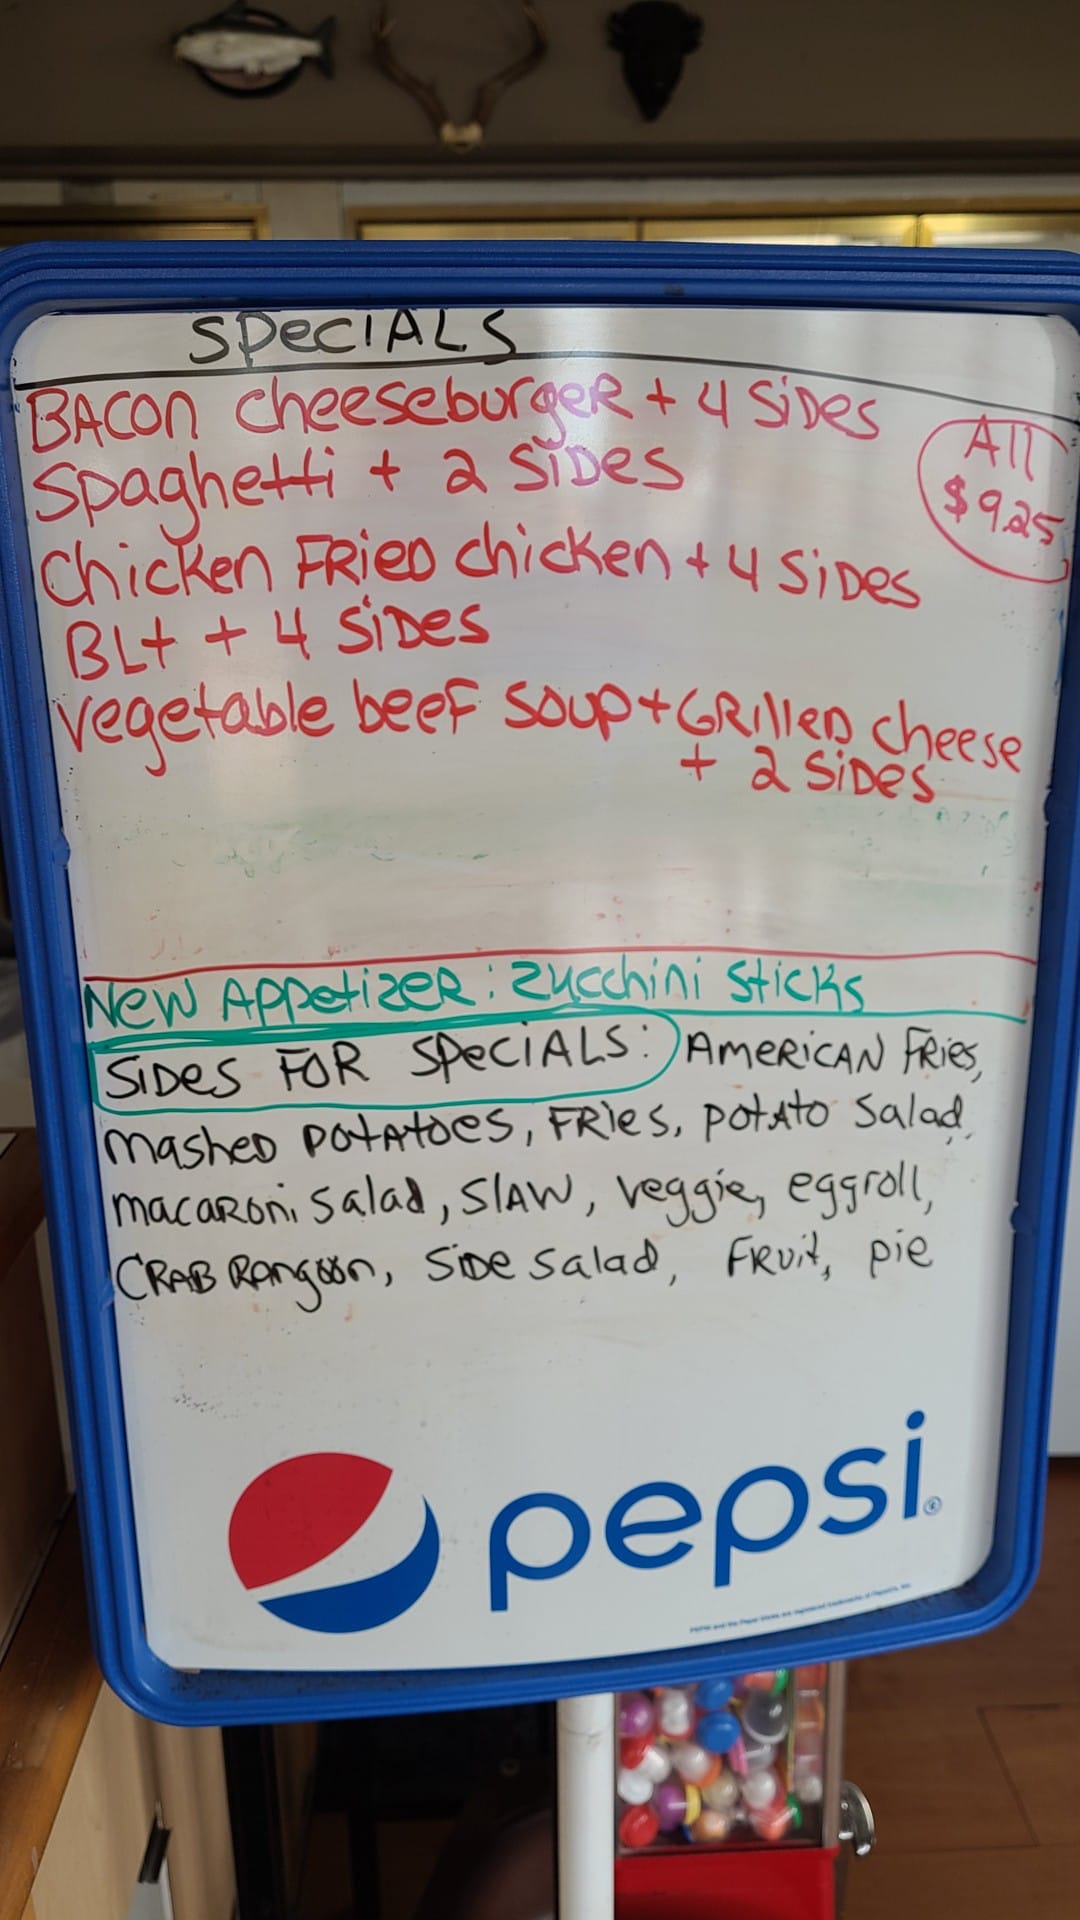 SPecIALS
BACON cheeseburgeR + 4 SiDes
Spaghetti + 2 SiDES
All
$9.25
Chicken FRieD chicken + 4 SiDes
BLt + 4 SiDes
vegetable beeF soup + GRilleD cheese
+ 2 SiDes
New Appetizer: Zucchini Sticks
SiDes FOR SPeciALS: AMeRiCAN FRies,
masheD potAtoes, FRies, potAto Salad,
macaRoni Salad, SlAW, veggie, eggroll,
CRAB Rangoon, SiDe Salad, FRuit, pie
pepsi